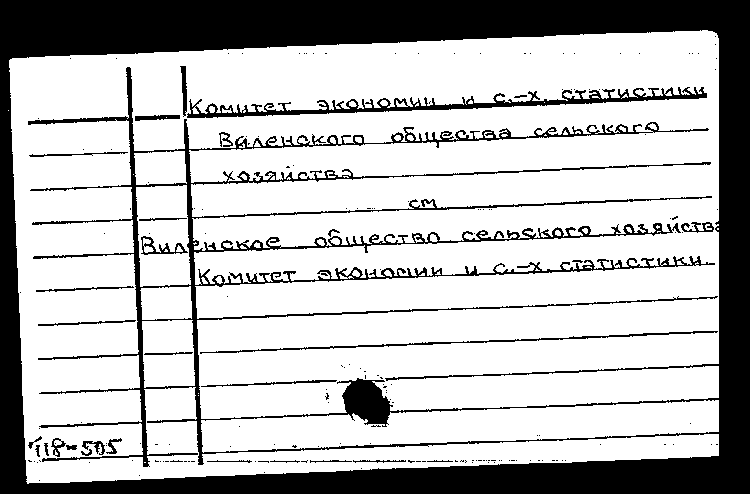 Комитет экономии и с.-х. статистики
Виленского общества сельского
хозяйства
см
Виленское общество сельского хозяйства
Комитет экономии и с.-х. статистики.
П18-505